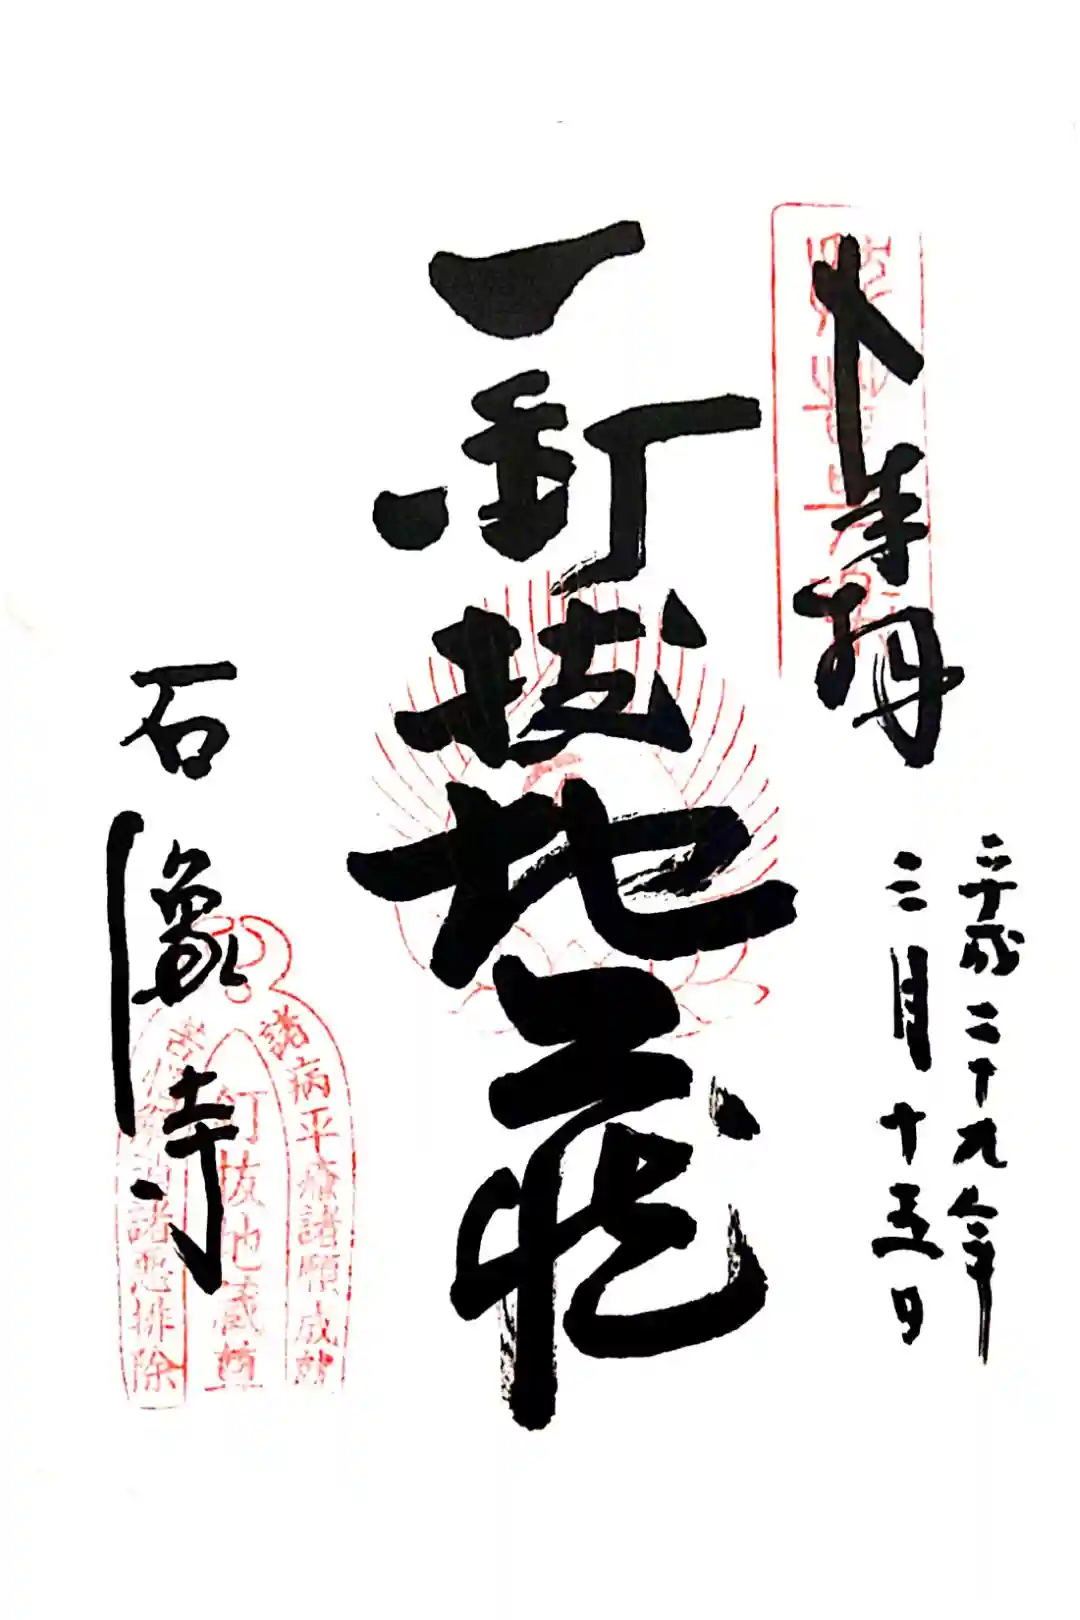 奉拝
平成二十九年
三月十五日
釘抜地蔵
石像寺
諸病平癒諸願成就
釘抜地蔵尊
諸悪排除